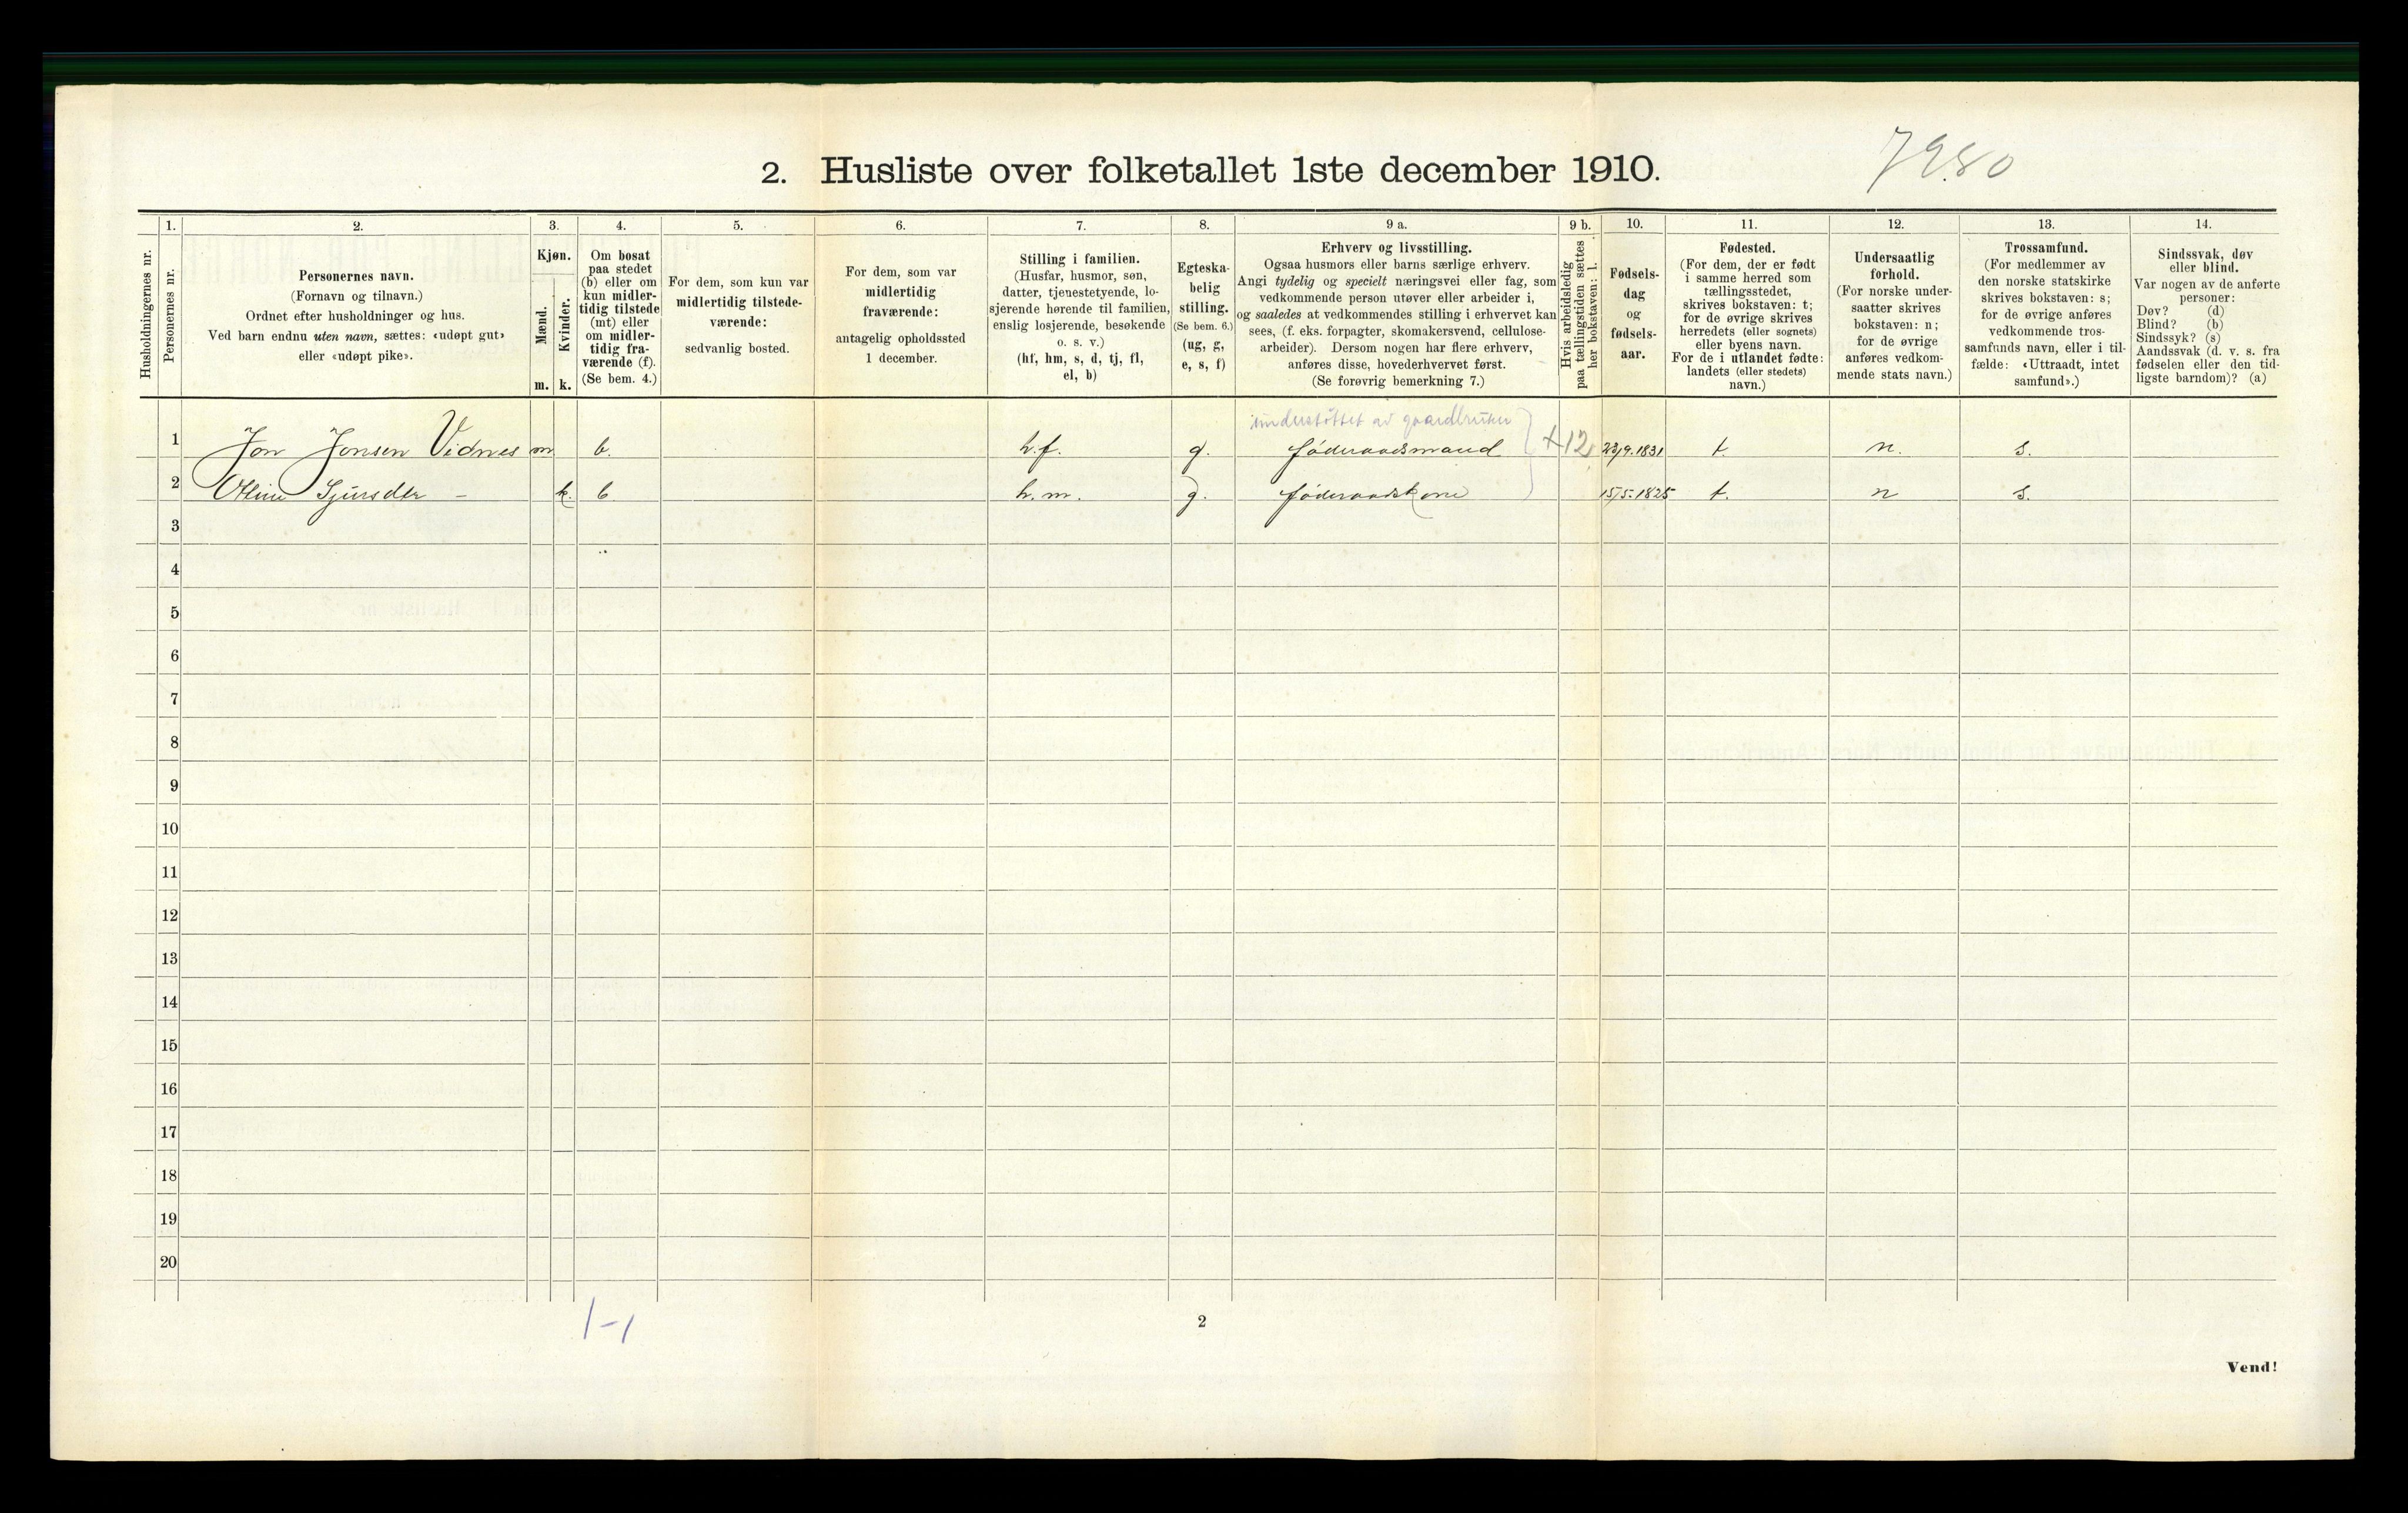 7980
2. Husliste over folketallet 1ste december 1910.
Husholdningernes nr.
1.
Personernes nr.
2.
Personernes navn.
(Fornavn og tilnavn.)
Ordnet efter husholdninger og hus.
Ved barn endnu uten navn, sættes: «udøpt gut»
eller «udøpt pike».
3.
Kjøn.
Mænd.
Kvinder.
m. k.
4.
Om bosat
paa stedet
(b) eller om
kun midler-
tidig tilstede
(mt) eller
om midler-
tidig fra-
værende (f).
(Se bem. 4.)
5.
For dem, som kun var
midlertidig tilstede-
værende:
sedvanlig bosted.
6.
For dem, som var
midlertidig
fraværende:
antagelig opholdssted
1 december.
7.
Stilling i familien.
(Husfar, husmor, søn,
datter, tjenestetyende, lo-
sjerende hørende til familien,
enslig losjerende, besøkende
o. s. v.)
(hf, hm, s, d, tj, fl,
el, b)
8.
Egteska-
belig
stilling.
(Se bem. 6.)
(ug, g,
e, s, f)
9 a.
Erhverv og livsstilling.
Ogsaa husmors eller barns særlige erhverv.
Angi tydelig og specielt næringsvei eller fag, som
vedkommende person utøver eller arbeider i,
og saaledes at vedkommendes stilling i erhvervet kan
sees, (f. eks. forpagter, skomakersvend, cellulose-
arbeider). Dersom nogen har flere erhverv,
anføres disse, hovederhvervet først.
(Se forøvrig bemerkning 7.)
9 b.
Hvis arbeidsledig
paa tællingstiden sættes
her bokstaven: l.
10.
Fødsels-
dag
og
fødsels-
aar.
11.
Fødested.
(For dem, der er født
i samme herred som
tællingsstedet,
skrives bokstaven: t;
for de øvrige skrives
herredets (eller sognets)
eller byens navn.
For de i utlandet fødte:
landets (eller stedets)
navn.)
12.
Undersaatlig
forhold.
(For norske under-
saatter skrives
bokstaven: n;
for de øvrige
anføres vedkom-
mende stats navn.)
13.
Trossamfund.
(For medlemmer av
den norske statskirke
skrives bokstaven: s;
for de øvrige anføres
vedkommende tros-
samfunds navn, eller i til-
fælde: «Uttraadt, intet
samfund».)
14.
Sindssvak, døv
eller blind.
Var nogen av de anførte
personer:
Døv? (d)
Blind? (b)
Sindssyk? (s)
Aandssvak (d. v. s. fra
fødselen eller den tid-
ligste barndom)? (a)
understøttet av gaardbruker
1 Jon Jonsen Vidnes m b. h.f. g. føderaadsmand +12 23/9.1831 t. n. s.
2 Oline Sjursdtr - k. b h.m. g. føderaadskone 15/5.1825 t. n s.
3
4
5
6
7
8
9
10
11
12
13
14
15
16
17
18
19
20
1-1
2
Vend!